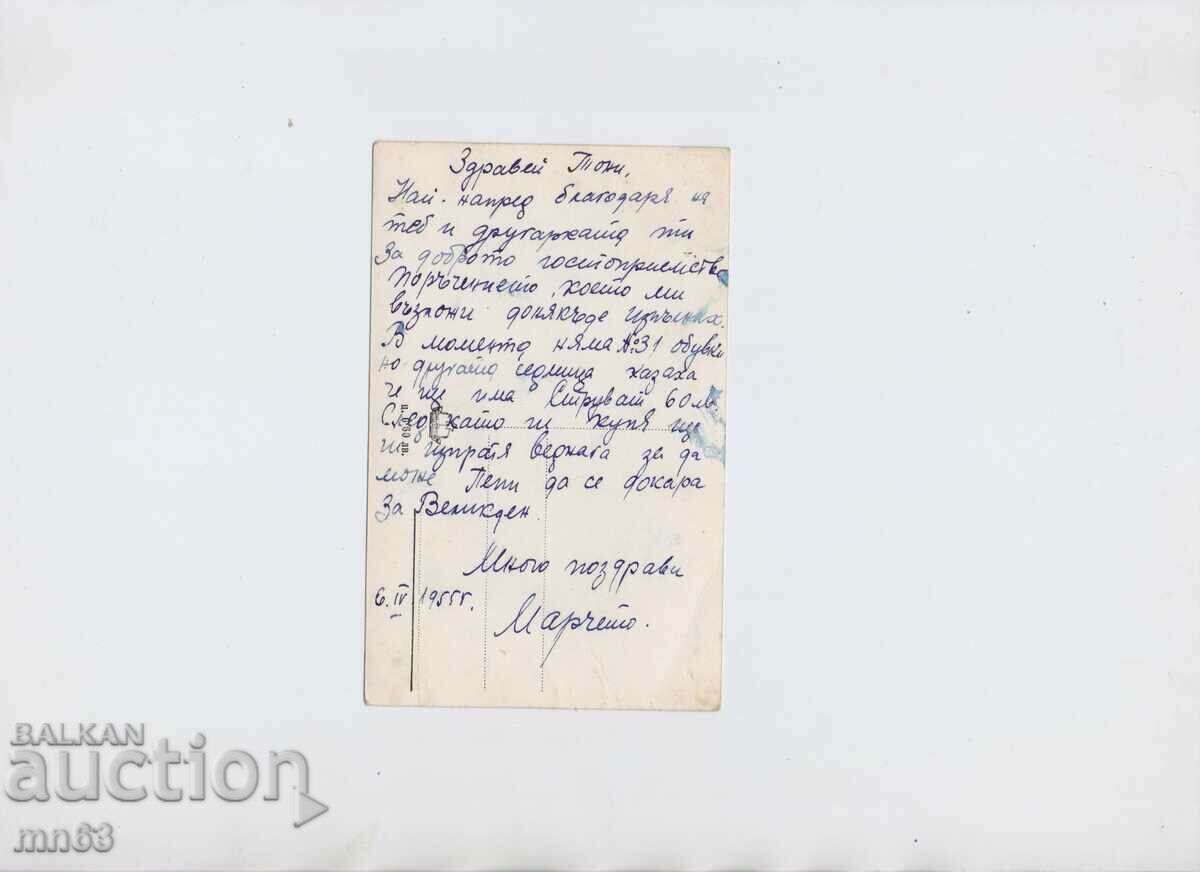 Здравей Тони,
Най-напред благодаря на
теб и другарката ти
за доброто гостоприемство
Поръчението, което ми
възложи донякъде изпълних.
В момента няма №31 обувки
но другата седмица казаха
че ще има. Струват 60 лв.
След като ги купя ще
ги изпратя веднага за да
може Пепи да се докара
за Великден.
Много поздрави
6.IV 1955г.
Марчето.
ц. 0.60 лв.
BALKAN
auction
mn63